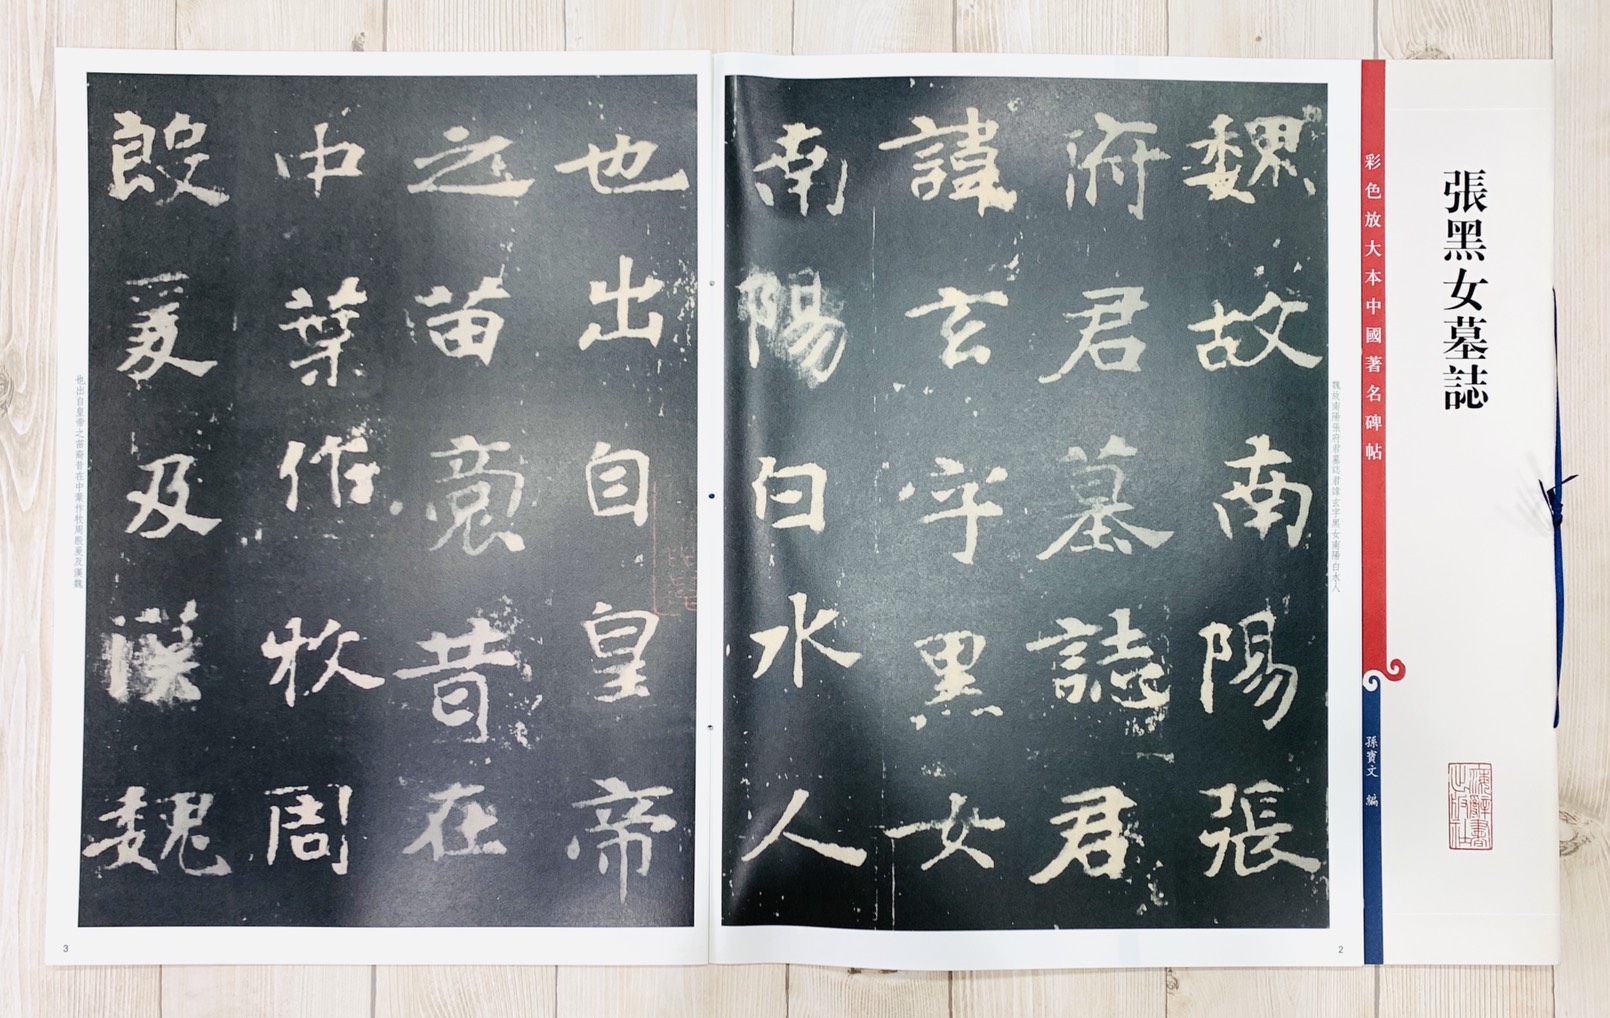 張黑女墓誌
彩色放大本中國著名碑帖
孫寶文 編
魏故南陽張府君墓誌君諱玄字黑女南陽白水人
魏故南陽張
府君墓誌君
諱玄字黑女
南陽白水人
2
也出自皇帝
之苗裔昔在
中葉作牧周
殷爰及漢魏
也出自皇帝之苗裔昔在中葉作牧周殷爰及漢魏
3